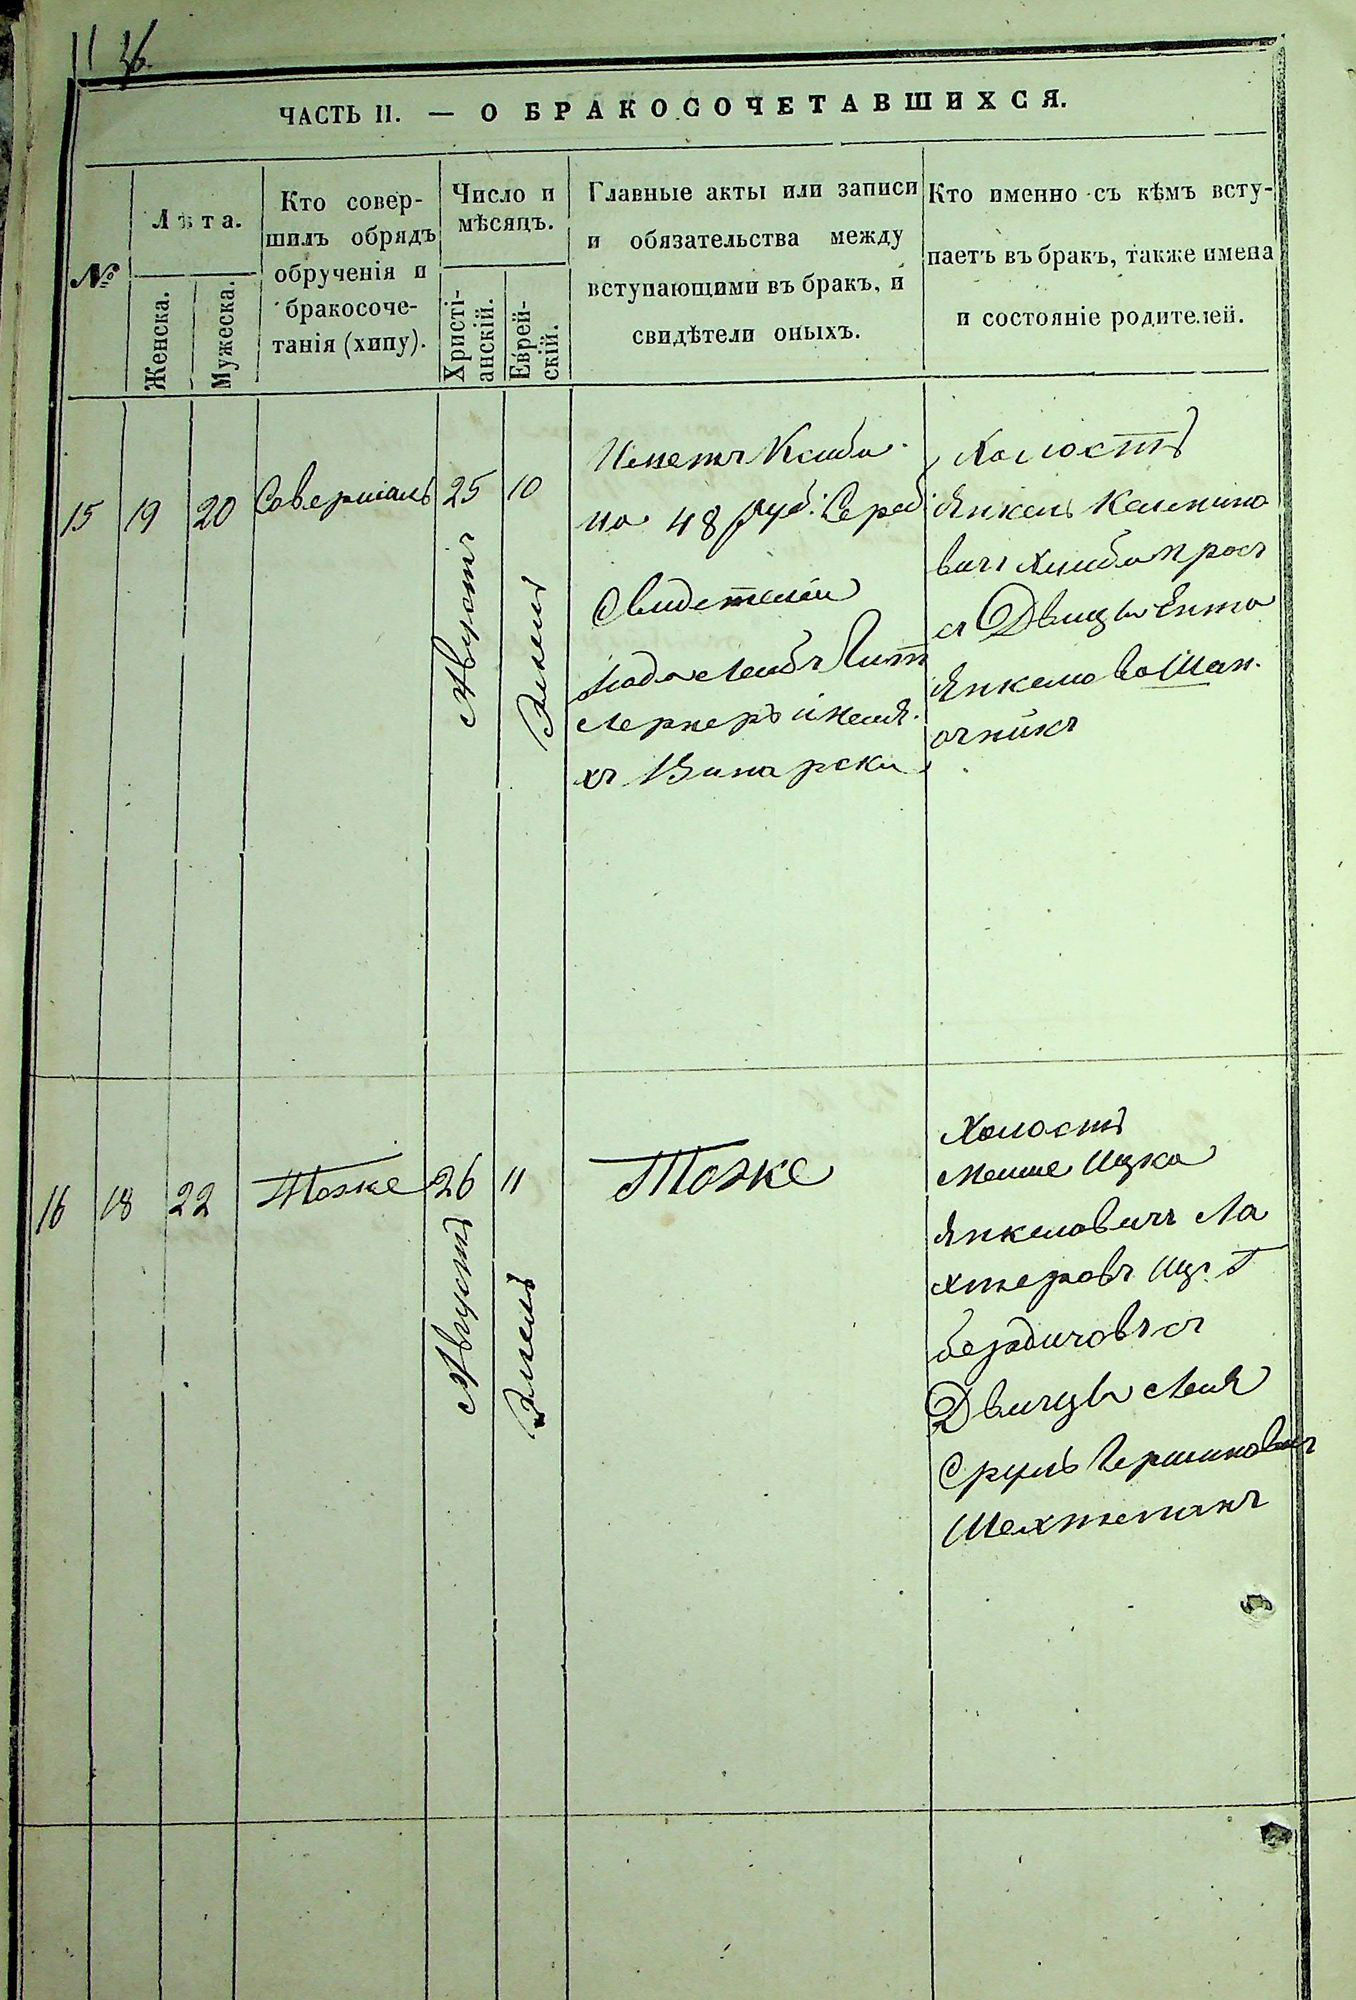 11 36.
ЧАСТЬ II. — О БРАКОСОЧЕТАВШИХСЯ.
№
Лѣта.
Женска.
Мужеска.
Кто совер-
шилъ обрядъ
обрученія и
бракосоче-
танія (хипу).
Число и
мѣсяцъ.
Христі-
анскій.
Еврей-
скій.
Главные акты или записи
и обязательства между
вступающими въ брак, и
свидѣтели оныхъ.
Кто именно съ кѣмъ всту-
паетъ въ бракъ, также имена
и состояніе родителей.
15
19
20
Совершалъ
25
Августъ
10
Элюль
на 48 руб: Сереб
Свидетели
Лернеръ и
хъ Винарски
Холостъ
Янкель
съ Двицы Ента
Янкелова Шап.
очникъ
16
18
22
Тоже
26
Августъ
11
Элюль
Тоже
Холостъ
Мошe Ицко
Янкеловичъ Ла
хтеровъ Г
бердичовъ съ
Двицы Лея
Сруль Гершкович
Шехтманъ